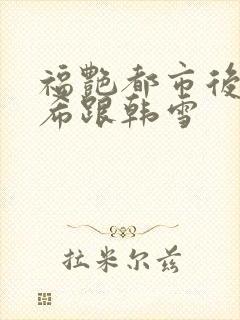 福艷都市後
希跟韩雪
拉米尔兹